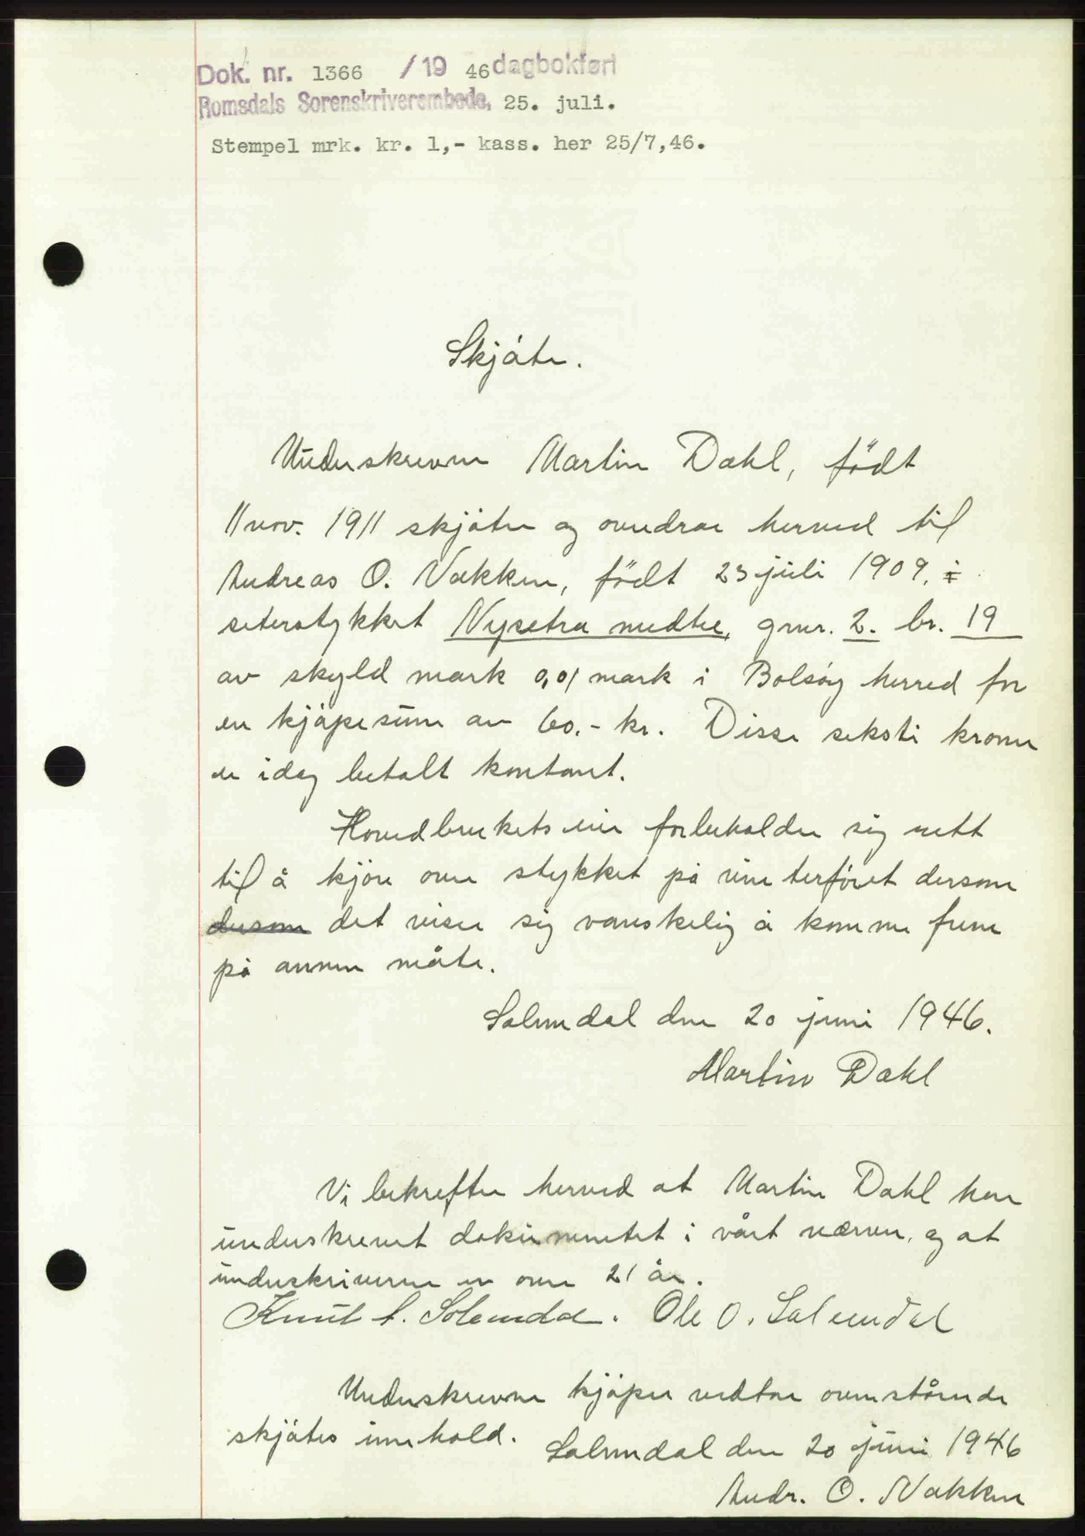 Dok. nr. 1366 /19 46 dagbokført
Romsdals Sorenskriverembede, 25. juli.
Stempel mrk. kr. 1,- kass. her 25/7,46.
Skjöte.
Underskrevne Martin Dahl, födt
11 nov. 1911 skjöter og overdrar herved til
Andreas O. Nakken, födt 23 juli 1909, i
seterstykket Nysetra nedre, gnr. 2. br. 19
av skyld mark 0,01 mark i Bolsöy herred for
en kjöpesum av 60.- kr. Disse seksti kroner
er idag betalt kontant.
Hovedbrukets eier forbeholder sig rett
til å kjöre over stykket på vinterföret dersom
dersom det viser sig vanskelig å komme frem
på annen måte.
Solemdal den 20 juni 1946.
Martin Dahl
Vi bekrefter herved at Martin Dahl har
underskrevet dokumentet i vårt nærver, og at
underskriverne er over 21 år.
Knut Solemdal. Ole O. Solemdal
Underskrevne kjöper vedtar ovenstående
skjötes innhold.
Solemdal den 20 juni 1946
Andr. O. Nakken